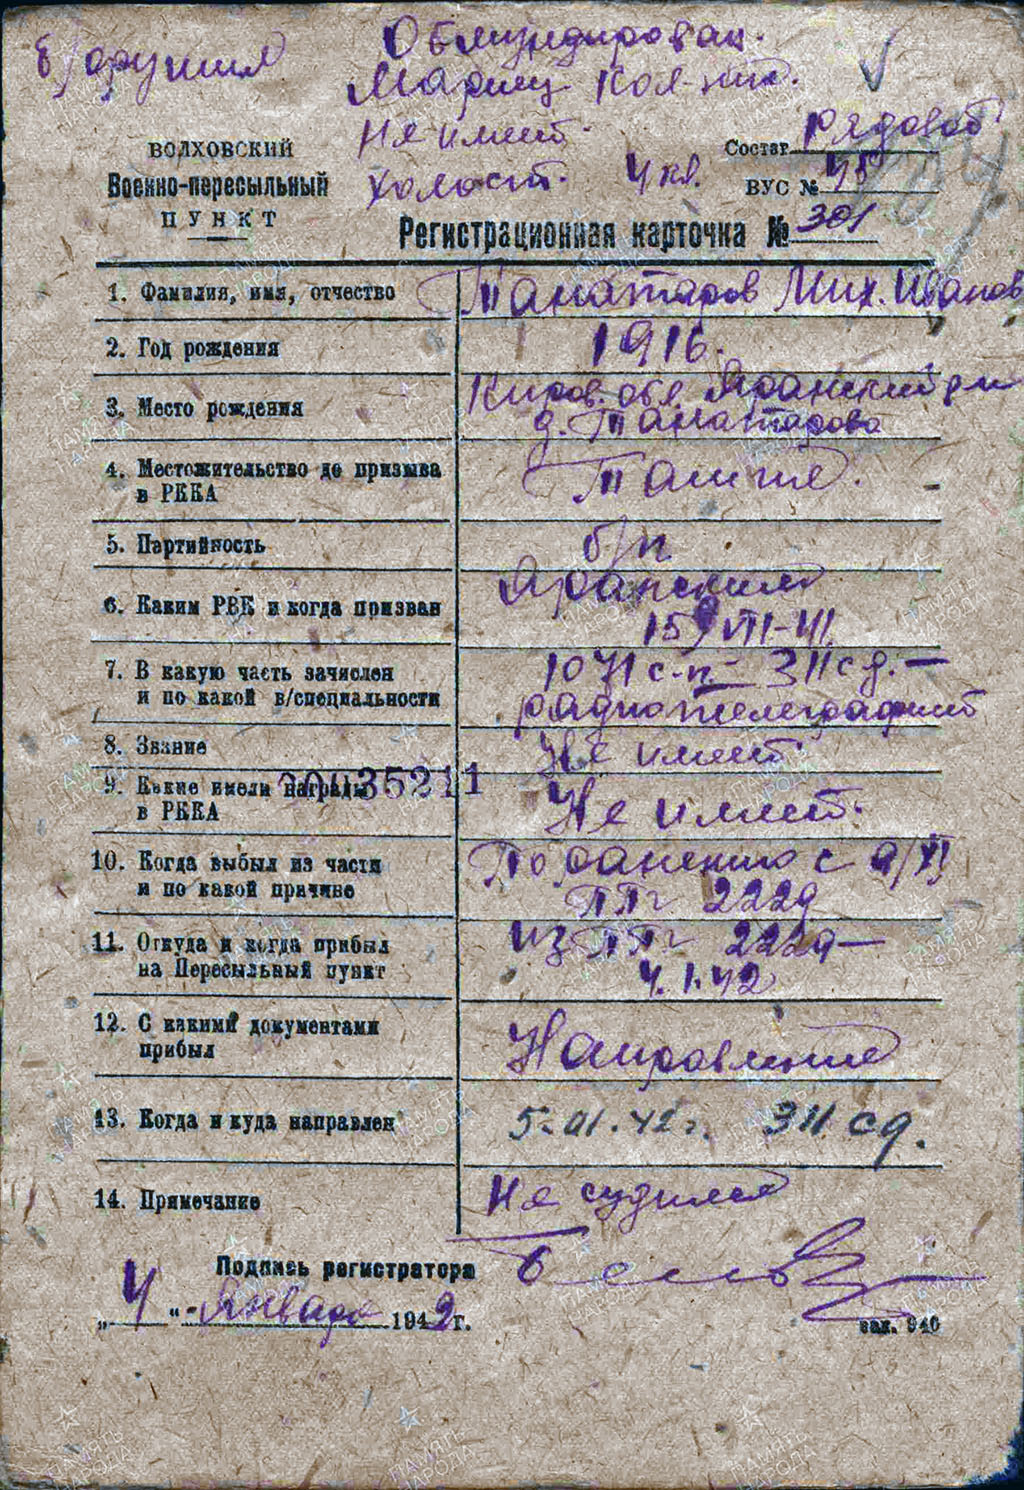 Обмундирован.
б/оружия
Мариец Кол-ник.
Не имеет.
Холост. 4 кл.
ВОЛХОВСКИЙ
Военно-пересыльный
ПУНКТ
Состав рядовой
ВУС № 45
Регистрационная карточка № 301
1. Фамилия, имя, отчество Танатаров Мих. Иванов
2. Год рождения 1916.
3. Место рождения Киров. обл Яранский р-н
д. Танатарово
4. Местожительство до призыва
в РККА Там же.
5. Партийность б/п
6. Каким РВК и когда призван Яранским
15/VIII-41
7. В какую часть зачислен 1071 с.п. 311 сд.
и по какой в/специальности радиотелеграфист
8. Звание Не имеет.
00035211
9. Какие имели награды
в РККА Не имеет.
10. Когда выбыл из части По ранению с 9/XI
и по какой причине ППГ 2229
11. Откуда и когда прибыл из ППГ 2229
на Пересыльный пункт 4.1.42
12. С какими документами
прибыл Направление
13. Когда и куда направлен 5.01.42 г. 311 сд.
14. Примечание Не судился
Подпись регистратора
„4“ Января 1942 г.
зак. 940
ПАМЯТЬ
НАРОДА